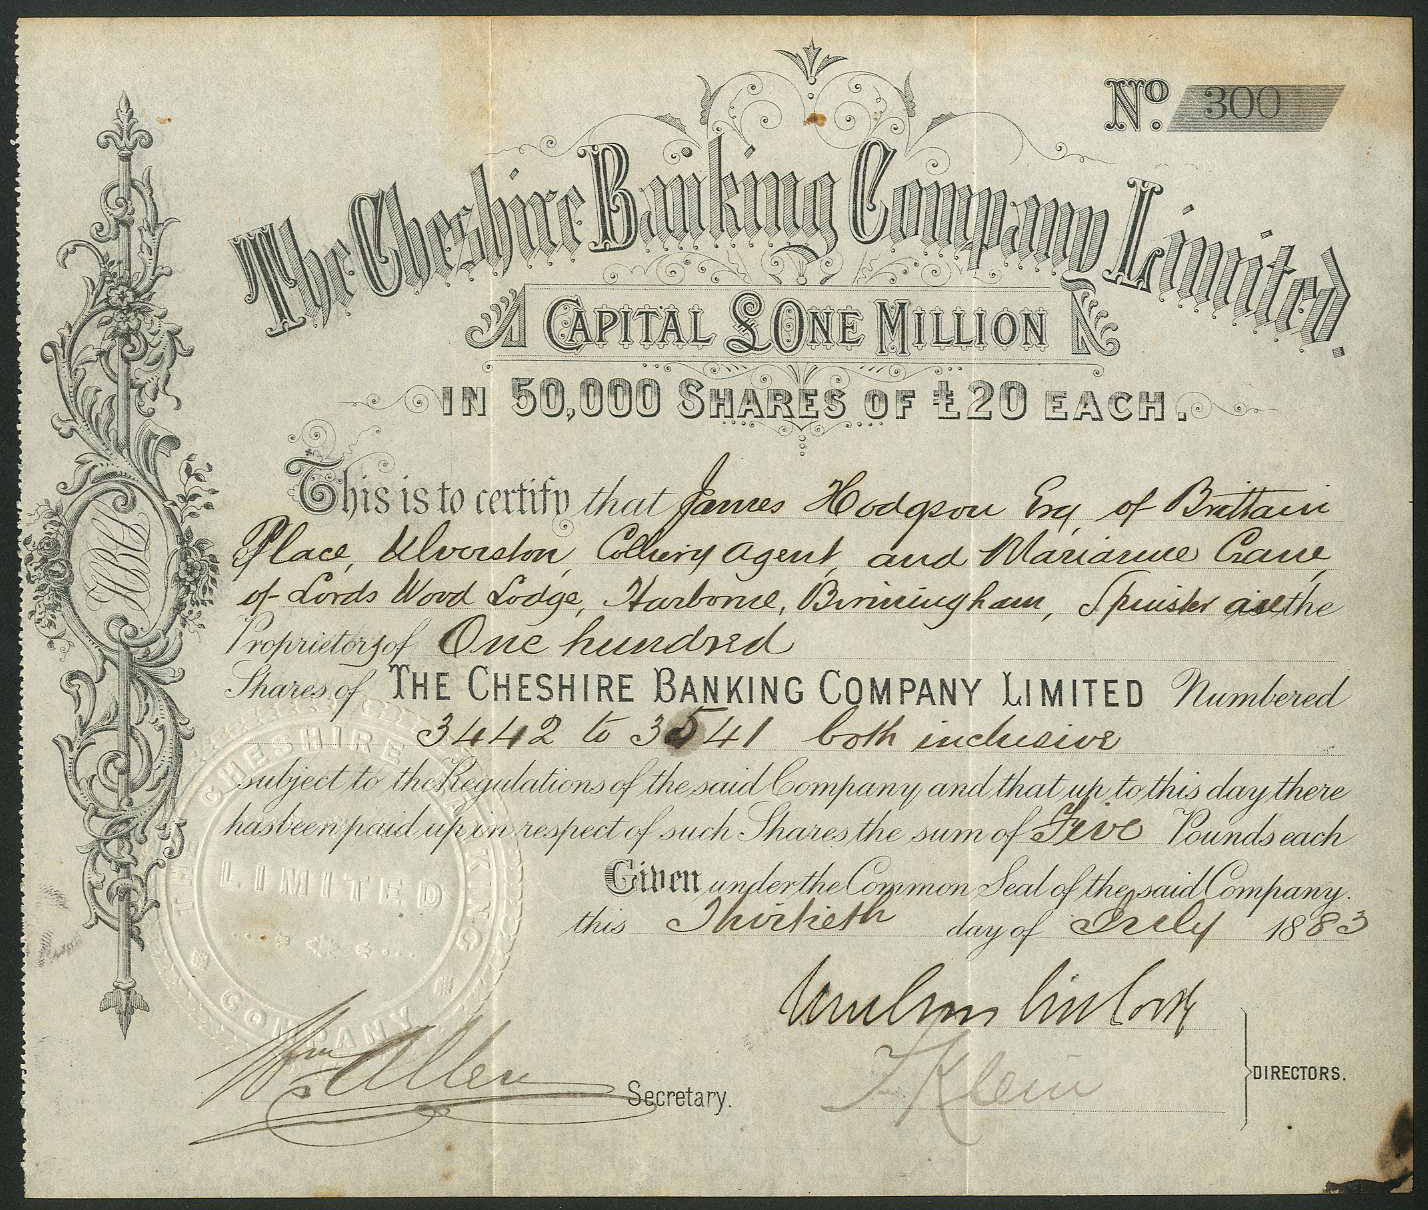 No. 300
The Cheshire Banking Company Limited.
CAPITAL £ONE MILLION
IN 50,000 SHARES OF £20 EACH.
This is to certify that James Hodgson Esq of Brittain
Place, Ulverston, Colliery Agent, and Marianne Crane,
of Lords Wood Lodge, Harborne, Birmingham, Spinster are the
Proprietors of One hundred
Shares of THE CHESHIRE BANKING COMPANY LIMITED Numbered
3442 to 3541 both inclusive
subject to the Regulations of the said Company and that up to this day there
has been paid up in respect of such Shares the sum of Five Pounds each
Given under the Common Seal of the said Company.
this Thirtieth day of July 1883
THE CHESHIRE BANKING COMPANY
LIMITED
Wm Allen Secretary.
F Klein
DIRECTORS.